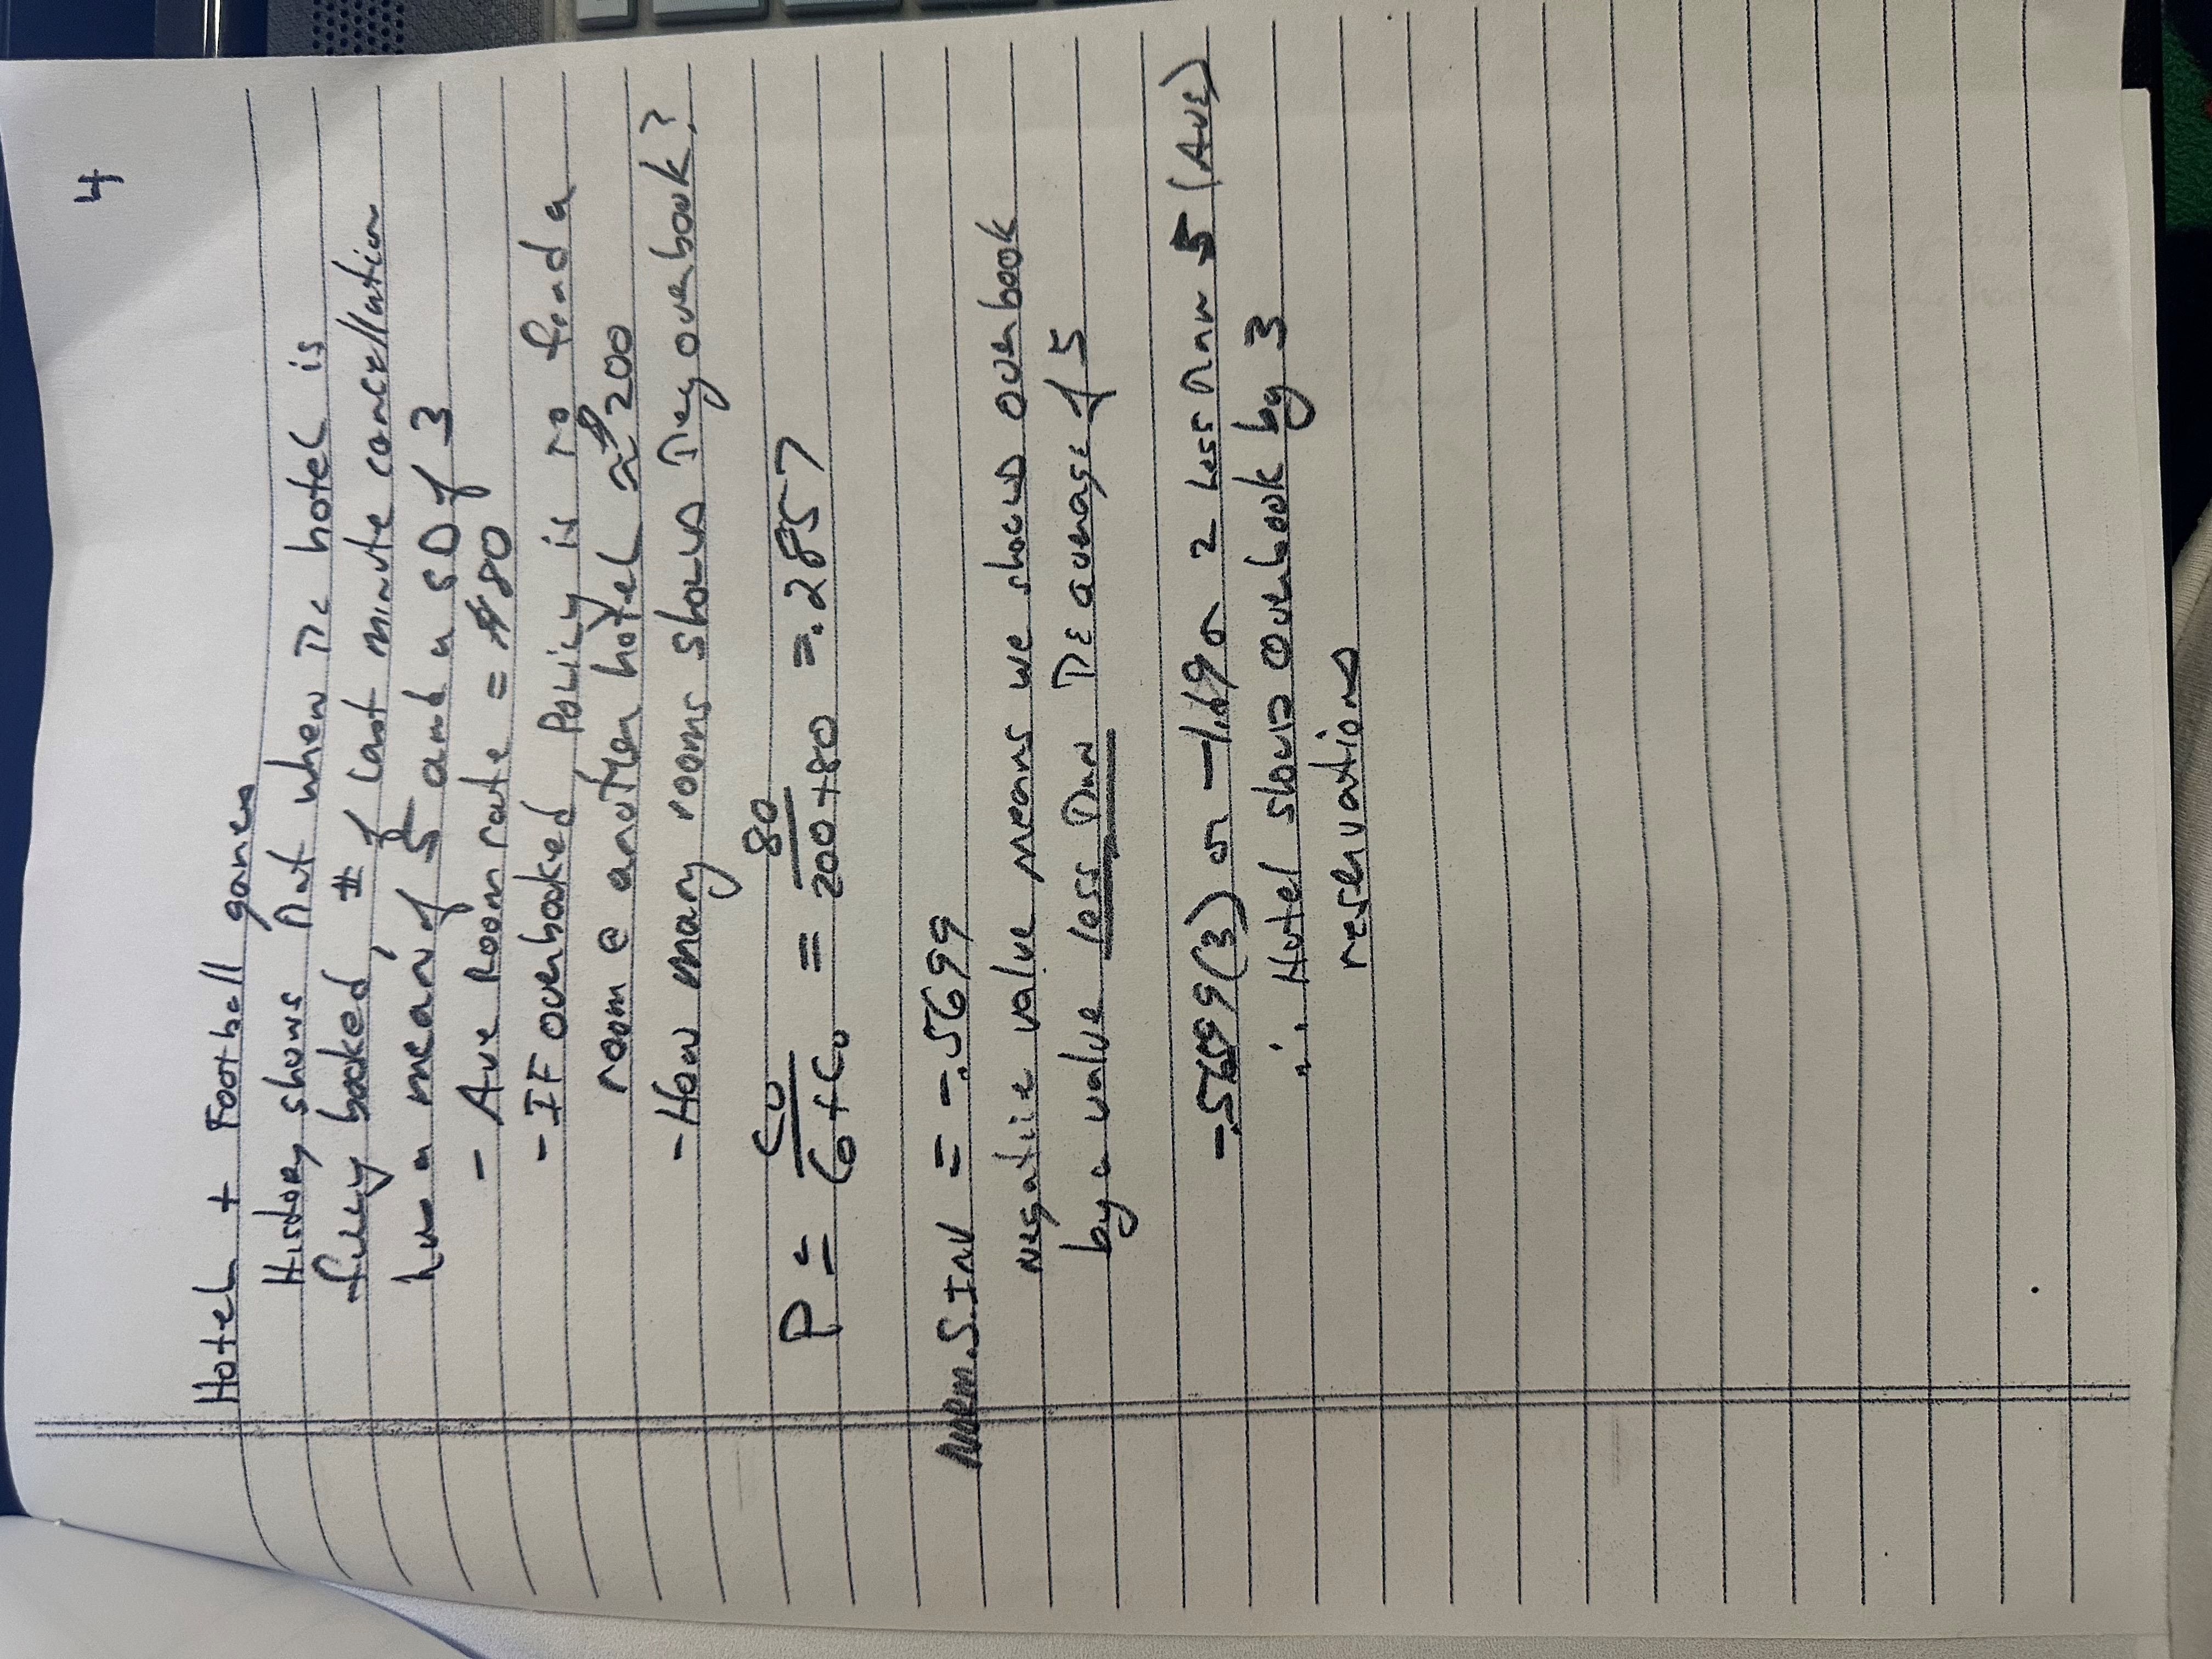 4
Hotel + Football games
History shows that when the hotel is
fully booked, # of last minute cancellation
has a mean of 5 and a SD of 3
- Ave Room rate = $80
- IF overbooked, Policy is to find a
room @ another hotel ≈ $200
- How many rooms should they overbook?
P ≤ Cu / (Co + Cu) = 80 / (200 + 80) = .2857
Norm.S.Inv = -.5699
Negative value means we should overbook
by a value less than the average of 5
-.5699(3) or -1.69 or 2 less than 5 (Ave)
∴ Hotel should overbook by 3
reservations